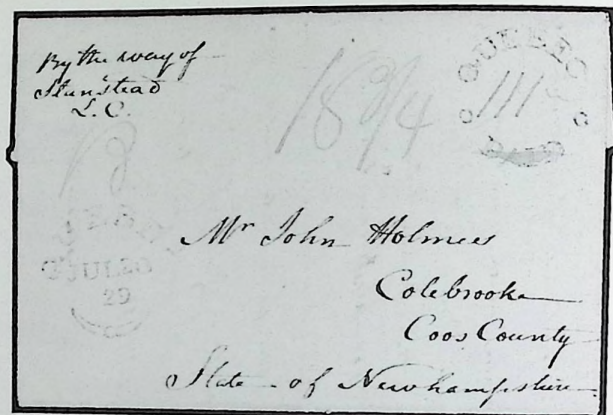 By the way of
Stanstead
L. C.
18 3/4
QUEBEC
PAID
JUL 20
29
Mr John Holmes
Colebrooke
Coos County
State of Newhampshire